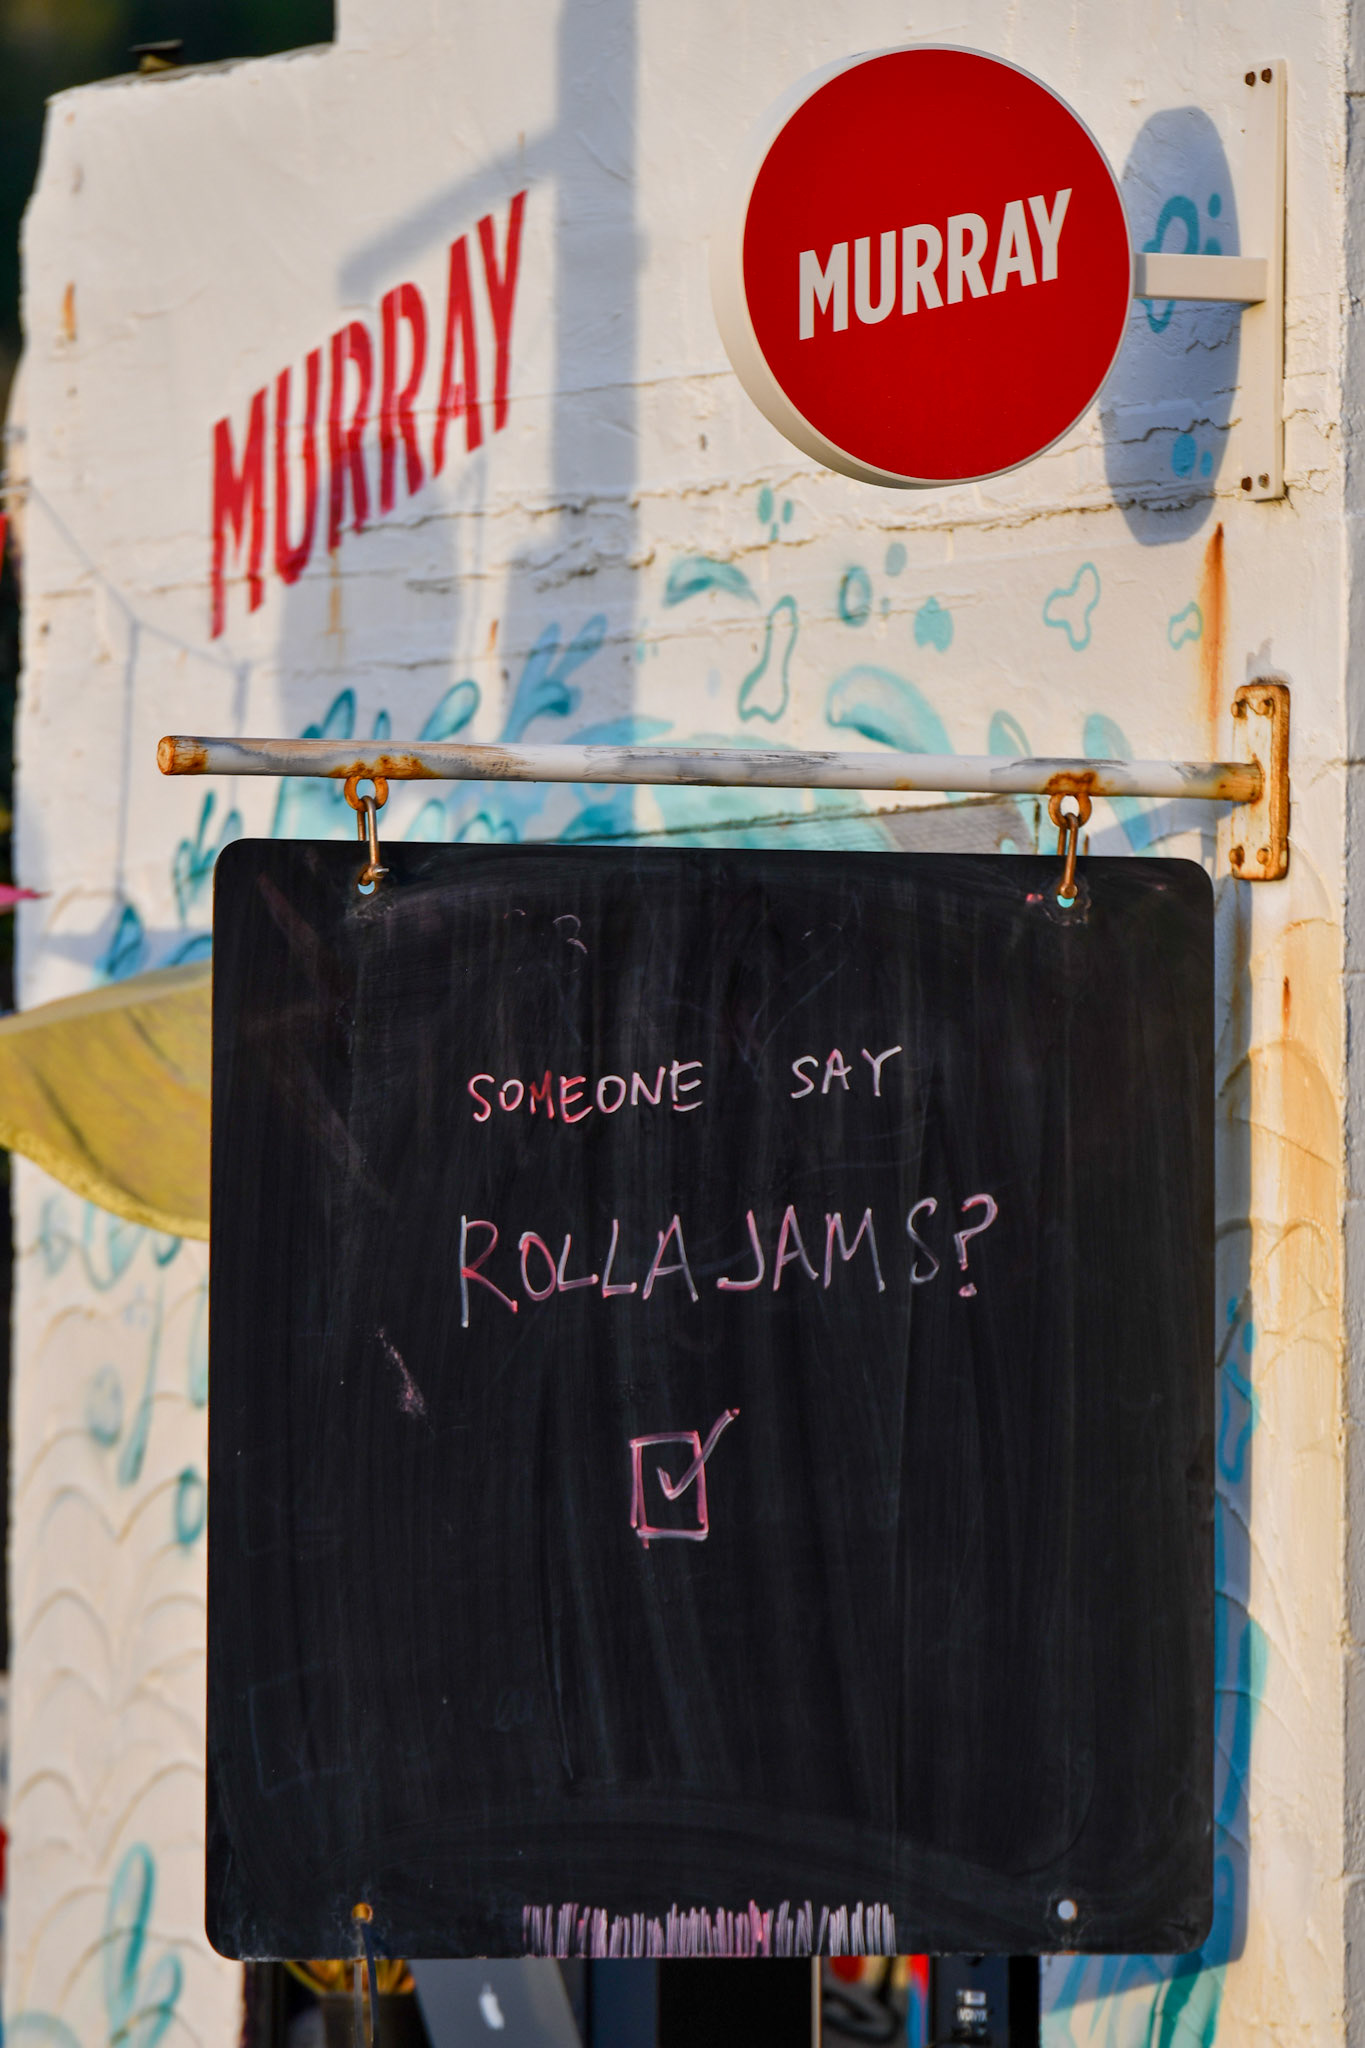 MURRAY
MURRAY
SOMEONE SAY
ROLLA JAMS?
VONYX